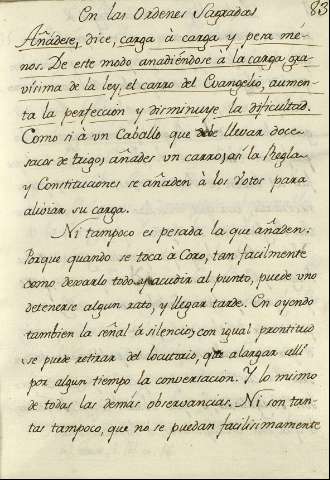 En las Ordenes Sagradas 83
Añádese, dice, carga à carga y pesa mé-
nos. De este modo anadiéndose à la carga gra-
vísima de la ley, el carro del Evangelio, aumen-
ta la perfeccion y disminuye la dificultad.
Como si à un Caballo que debe llevar doce
sacos de trigo, añades un carro; así la Regla
y Constituciones se añaden à los Votos para
aliviar su carga.
Ni tampoco es pesada la que añaden:
Porque quando se toca à Coro, tan facilmente
como dexarlo todo, y acudir al punto, puede uno
detenerse algun rato, y llegar tarde. En oyendo
tambien la señal à silencio, con igual prontitud
se puede retirar del locutorio, que alargar allí
por algun tiempo la conversacion. Y lo mismo
de todas las demás observancias. Ni son tan-
tas tampoco, que no se puedan facilísimamente